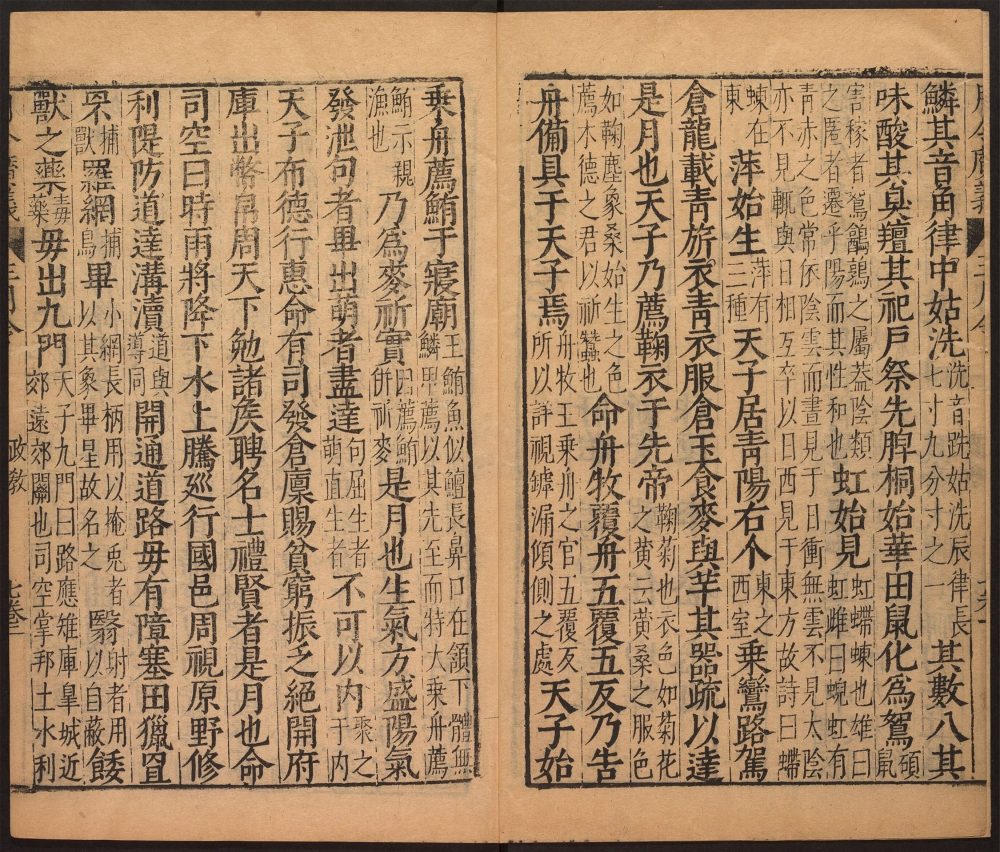 鱗其音角律中姑洗洗音跣姑洗辰律長七寸九分寸之一其數八其
味酸其臭羶其祀戶祭先脾桐始華田鼠化爲鴽碩鼠
害稼者鴽鶴鶉之屬蓋陰類之慝者遷乎陽而其性和也虹始見虹螮蝀也雄曰虹雌曰蜺虹有
青赤之色常依陰雲而晝見于日衝無雲不見太陰亦不見輒與日相互卒以日西見于東方故詩曰螮
蝀在東萍始生萍有三種天子居靑陽右个東之西室乘鸞路駕
倉龍載靑旂衣靑衣服倉玉食麥與羊其器疏以達
是月也天子乃薦鞠衣于先帝鞠菊也衣色如菊花之黄云黄桑之服色
如鞠塵象桑始生之色薦木德之君以祈蠶也命舟牧覆舟五覆五反乃告
舟備具于天子焉舟牧主乗舟之官五覆反所以詳視鏬漏傾側之處天子始
乗舟薦鮪于寢廟王鮪魚似鱣長鼻口在頷下體無鱗甲薦以其先至而特大乗舟薦
鮪示親漁也乃爲麥祈實因薦鮪併祈麥是月也生氣方盛陽氣
發泄句者畢出萌者盡達句屈生者萌直生者不可以內聚之于內
天子布德行惠命有司發倉廩賜貧窮振乏絕開府
庫出幣帛周天下勉諸矦聘名士禮賢者是月也命
司空曰時雨將降下水上騰廵行國邑周視原野修
利隄防道達溝瀆道與導同開通道路毋有障塞田獵罝
罘捕獸羅網捕鳥畢小網長柄用以掩兎者以其象畢星故名之翳射者用以自蔽餧
獸之藥毒藥毋出九門天子九門曰路應雉庫皐城近郊遠郊關也司空掌邦土水利
政敎
七卷二